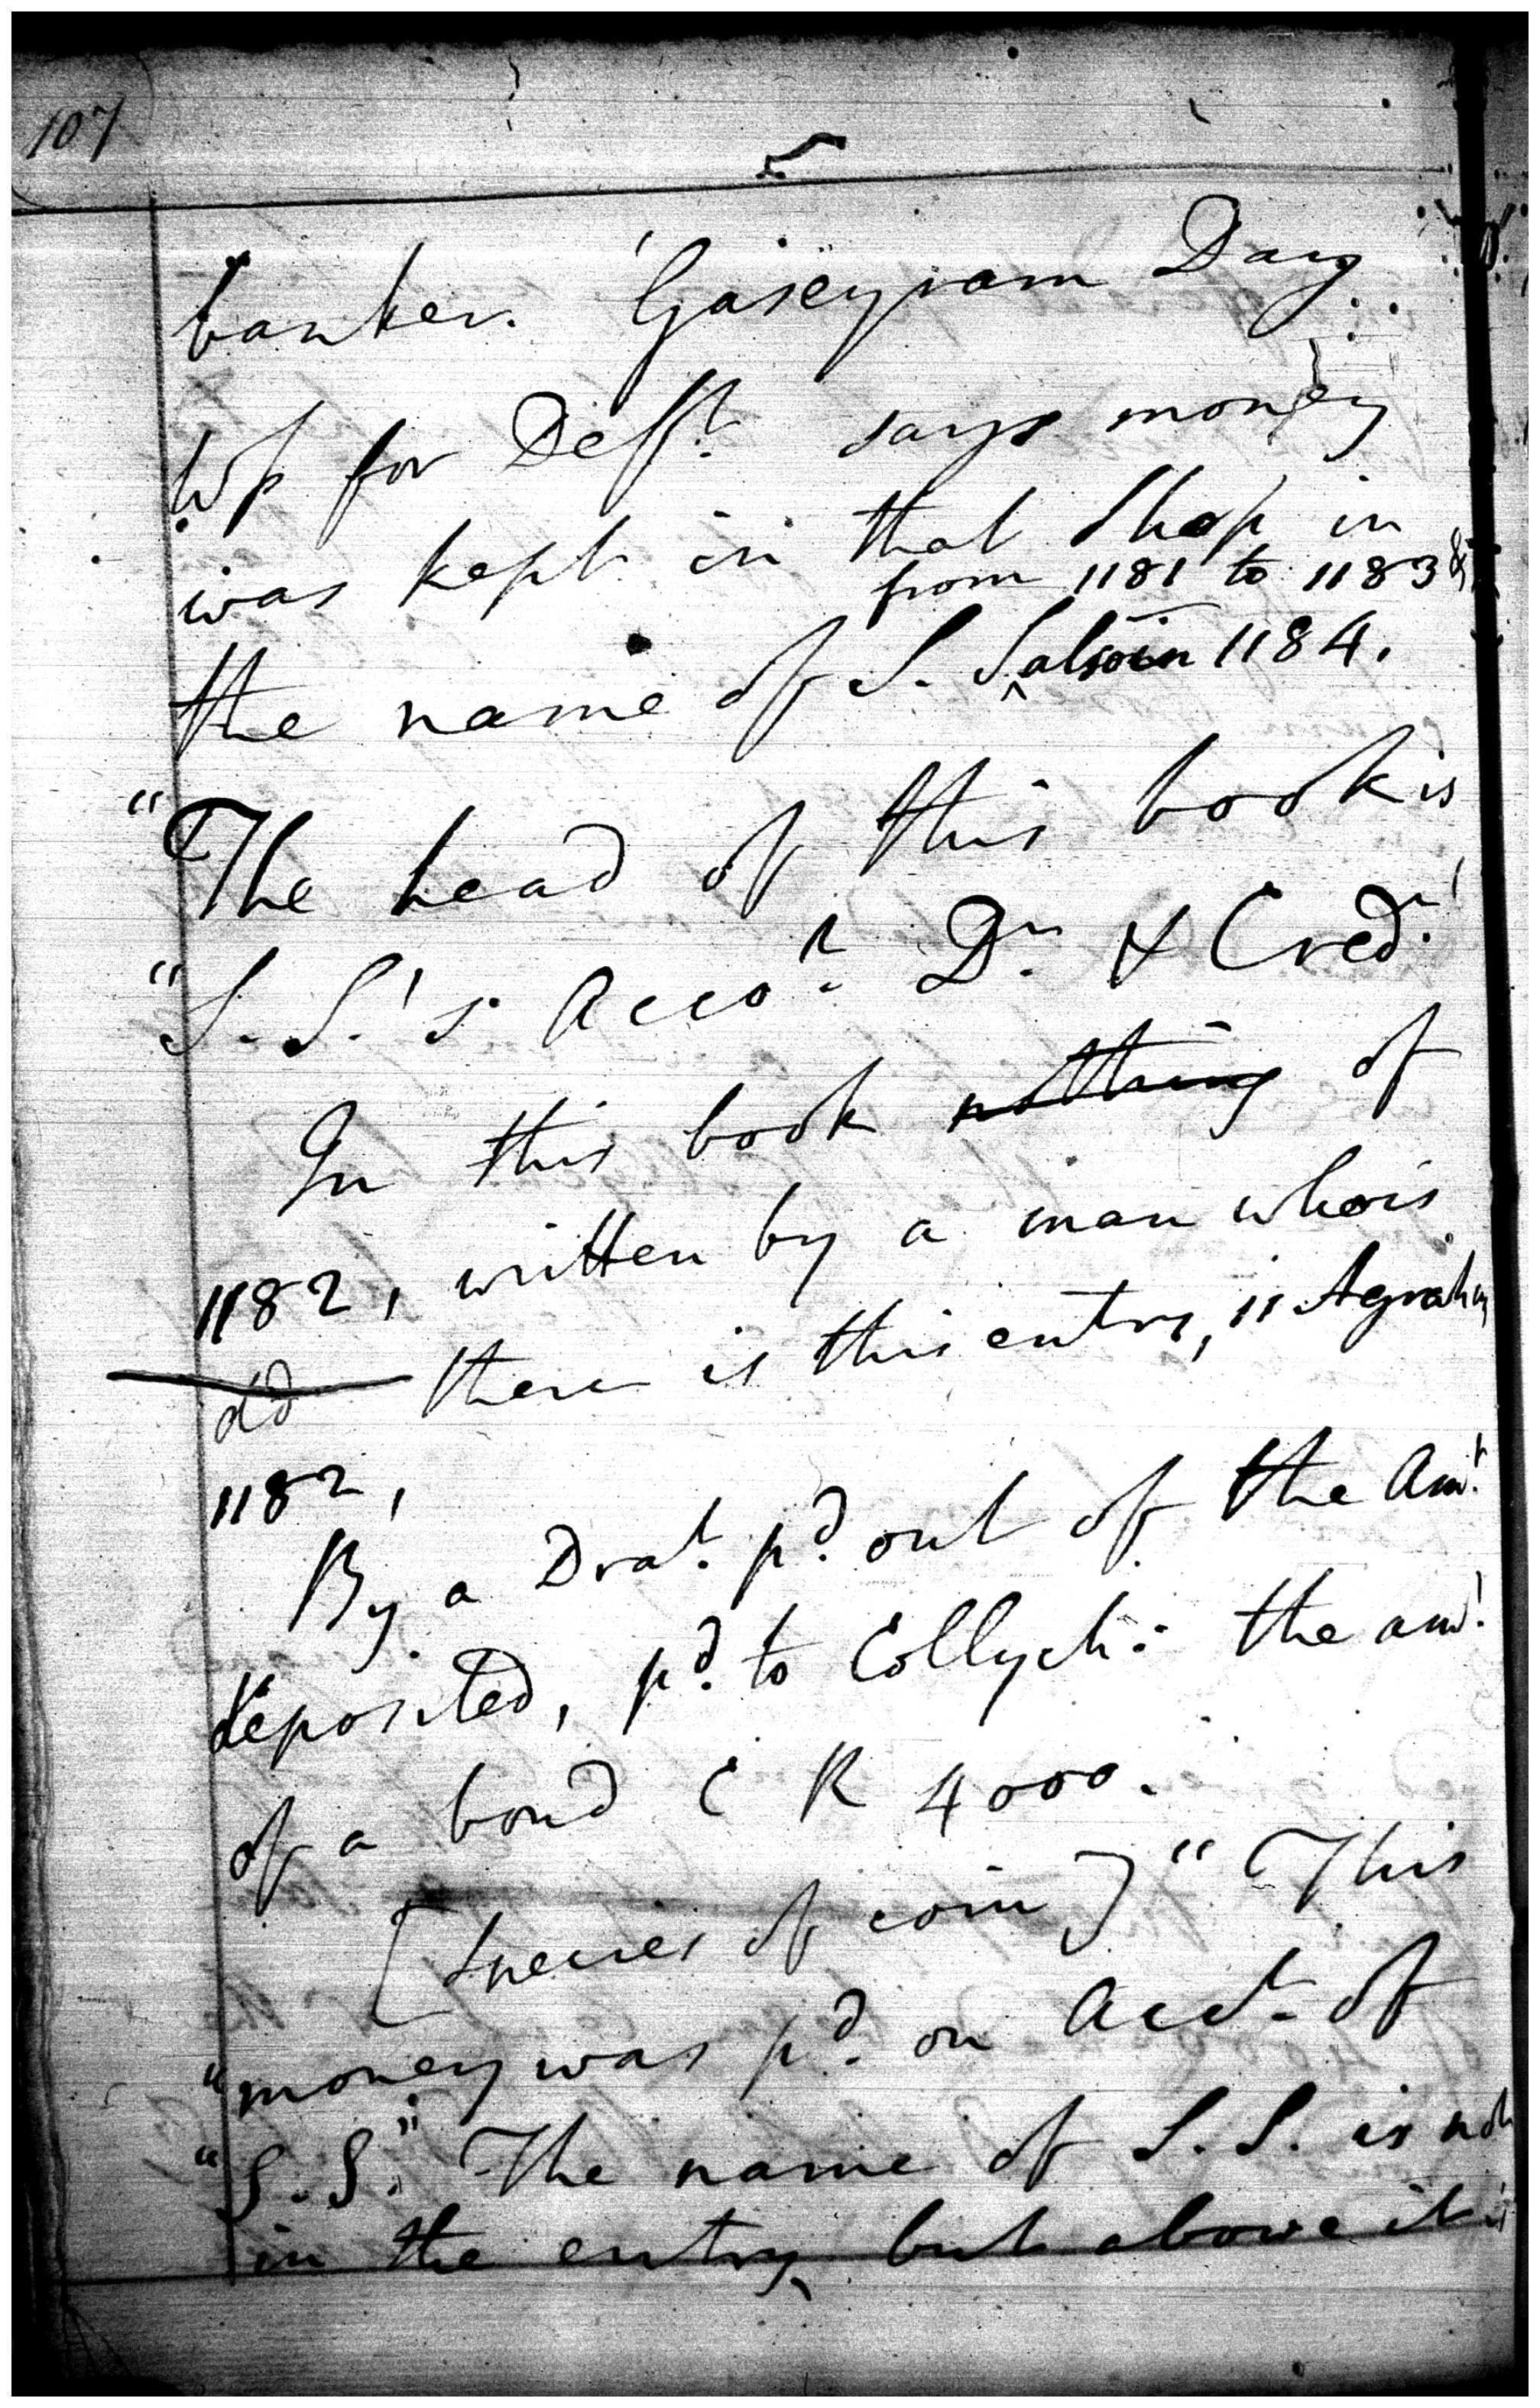 107
5
banker. Gaseyram Dang
Ws for Defft. says money
was kept in that Shop in
from 1181 to 1183 &
the name of S. S. also in 1184.
"The head of this book is
"S. S.'s Acco.t Dr. & Cred.r
In this book nothing of
1182, written by a man who is
dd there is this entry, 11 Agrahn
1182,
By a Drat. pd. out of the Amt.
deposited, pd. to Collych: the amt.
of a bond C R 4000.
[species of coin] "This
"money was pd. on Acct. of
"S. S." The name of S. S. is not
in the entry but above it